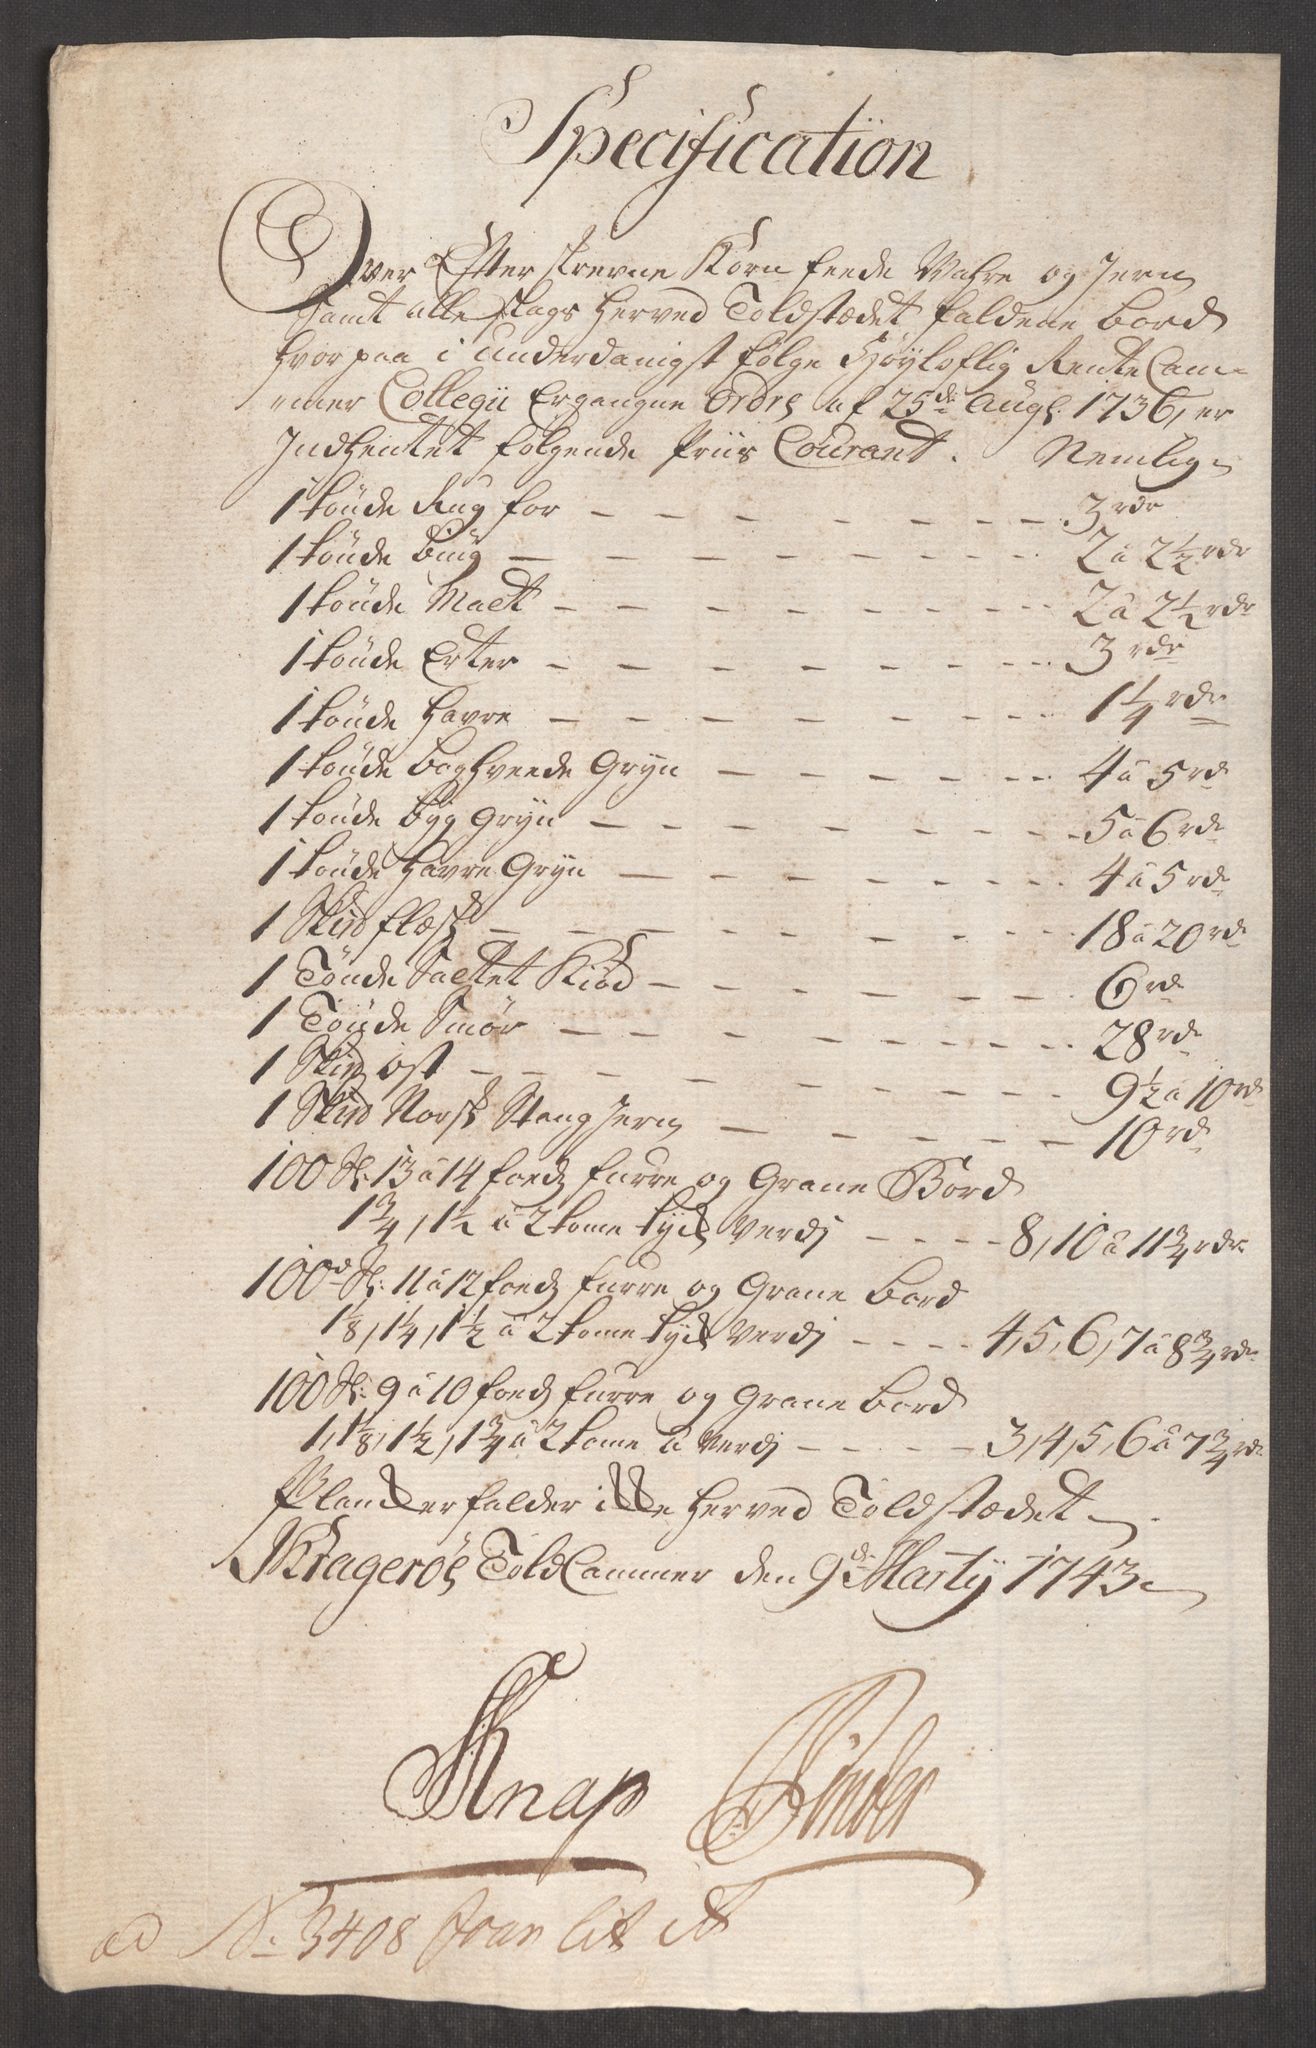 Specification
Over Efter skrevne Korn feede Vahre og Jern
Samt alle slags herved Toldstædet faldene bord
hvor paa i Underdanigst følge Høyloflig Rente Cam¬
mer Collegii Ergangne Ordre af 25de Augs. 1736, er
Indhentet følgende Priis Courant. Nemlig
1 tønde Rug for — — — — — — 3 rdr
1 tønde biug — — — — — — 2 â 2 1/2 rdr
1 tønde Malt — — — — — — 2 â 2 1/2 rdr
1 tønde Erter — — — — — — 3 rdr
1 tønde havre — — — — — — 1 1/4 rdr
1 tønde boghveede Gryn — — — — 4 â 5 rd
1 tønde byg Gryn — — — — — 5 â 6 rdr
1 tønde havre Gryn — — — — — 4 â 5 rdr
1 Skud flæsk — — — — — — 18 â 20 rdr
1 Tønde Saltet Kiød — — — — — 6 rd
1 Tønde Smør — — — — — — 28 rdr
1 Skud ost — — — — — — 9 1/2 â 10 rdr
1 Skud Norsk Stang Jern — — — — 10 rdr
100 St: 13 â 14 foed furre og Grane Bord
1 3/4, 1 1/2 â 2 tome tyck verdj — — — — 8, 10 â 11 3/4 rdr
100d St: 11 â 12 foed furre og Grane bord
1/8, 1 1/4, 1 1/2 â 2 tome tyck verdj — — — — 4, 5, 6, 7 â 8 3/4 rdr
100 St: 9 â 10 foed furre og Grane bord
1, 1/8, 1 1/2, 1 3/4 â 2 tome â verdj — — — — 3, 4, 5, 6 â 7 3/4 rdr
Plancker falder icke herved Toldstædet
Kragerøe Told Cammer den 9de Martij 1743
Knap Pinder
ad No: 3408 lit A